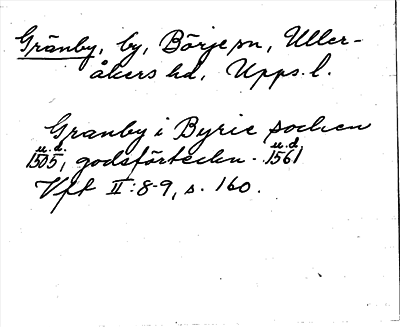 Gränby, by, Börje sn, Uller-
åkers hd, Upps. l.
Granby i Byrie sochen
u.d. u.d.
1505, godsförteckn. 1561
Vft II:8-9, s. 160.